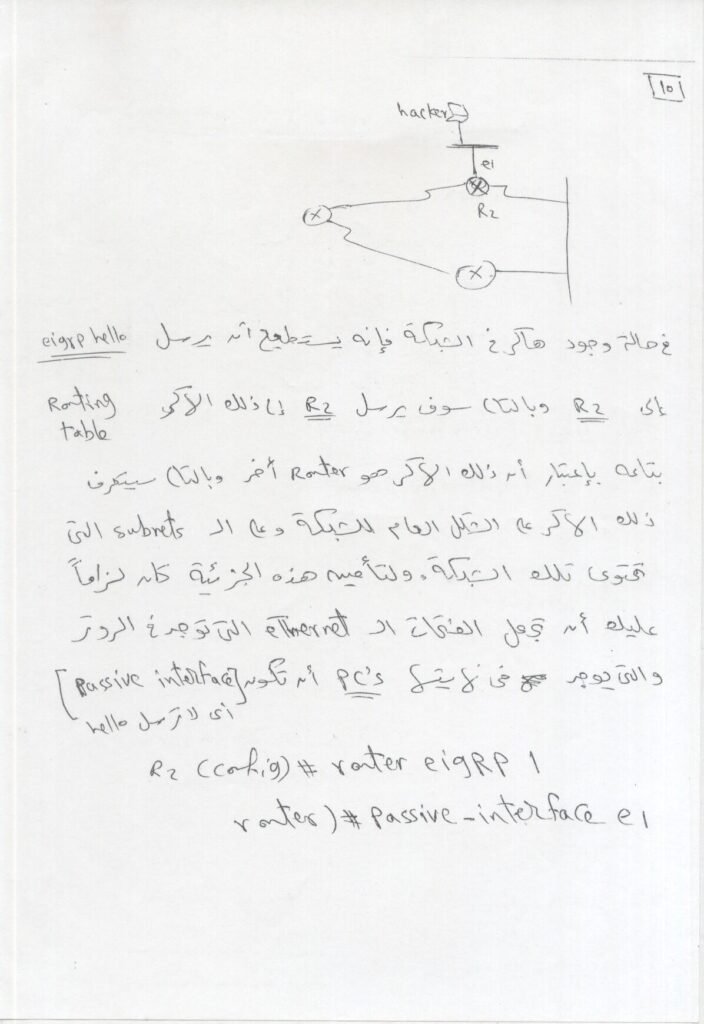 10
hacker
e1
R2
في حالة وجود هاكر في الشبكة فإنه يستطيع أن يرسل eigrp hello
إلى R2 وبالتالي سوف يرسل R2 إلى ذلك الاكر Routing table
بتاعه بإعتبار أن ذلك الاكر هو Router أخر وبالتالي سيتعرف
ذلك الاكر على الشكل العام للشبكة وعلى الـ subnets التى
تحتوى تلك الشبكة. ولتأمين هذه الجزئية كان لزاماً
عليك أن تجعل الفتحات الـ ethernet التى توجد في الروتر
والتى يوجد فى نهايتها PC's أن تكون [passive interface]
أى لا ترسل hello
R2 (config)# router eigRP 1
router)# passive-interface e1